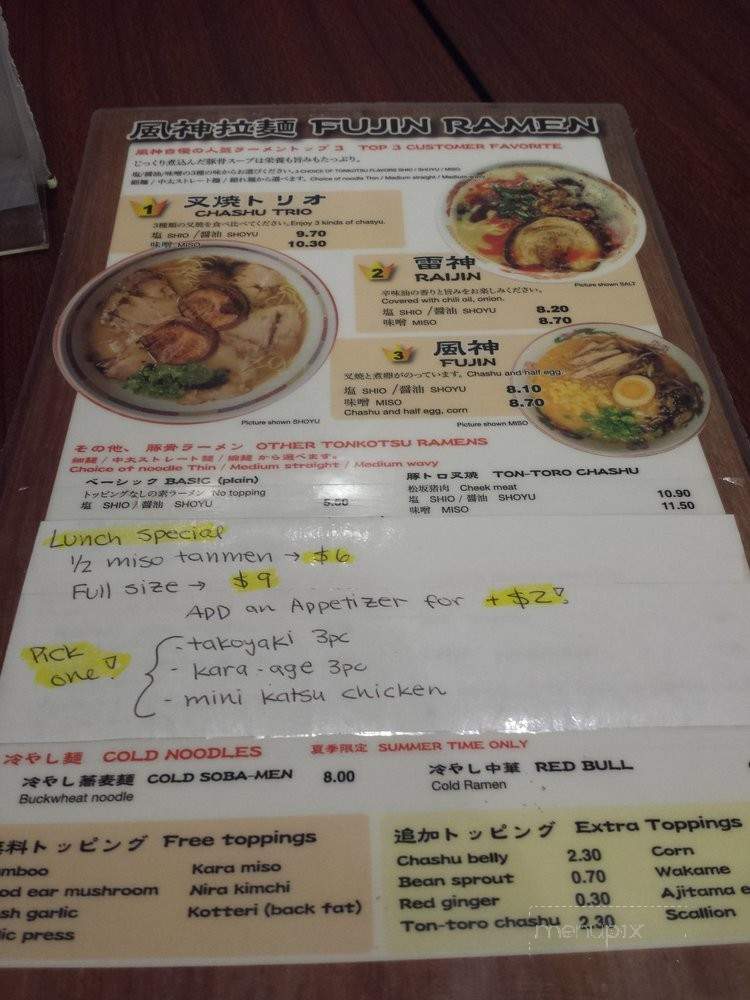 風神拉麺 FUJIN RAMEN
風神自慢の人気ラーメントップ3 TOP 3 CUSTOMER FAVORITE
じっくり煮込んだ豚骨スープは栄養も旨みもたっぷり。
塩/醤油/味噌の3種の味からお選びください。3 CHOICE OF TONKOTSU FLAVORS SHIO / SHOYU / MISO
細麺 / 中太ストレート麺 / 縮れ麺から選べます。Choice of noodle Thin / Medium straight / Medium wavy
1 叉焼トリオ
CHASHU TRIO
3種類の叉焼を食べ比べてください。Enjoy 3 kinds of chasyu.
塩 SHIO /醤油 SHOYU 9.70
味噌 MISO 10.30
Picture shown SALT
2 雷神
RAIJIN
辛味油の香りと旨みをお楽しみください。
Covered with chili oil, onion.
塩 SHIO /醤油 SHOYU 8.20
味噌 MISO 8.70
3 風神
FUJIN
叉焼と煮卵がのっています。Chashu and half egg
塩 SHIO /醤油 SHOYU 8.10
味噌 MISO 8.70
Chashu and half egg, corn
Picture shown SHOYU
Picture shown MISO
その他、豚骨ラーメン OTHER TONKOTSU RAMENS
細麺 / 中太ストレート麺 / 縮麺 から選べます。
Choice of noodle Thin / Medium straight / Medium wavy
ベーシック BASIC (plain)
トッピングなしの素ラーメン No topping
塩 SHIO / 醤油 SHOYU
豚トロ叉焼 TON-TORO CHASHU
松坂猪肉 Cheek meat
塩 SHIO / 醤油 SHOYU 10.90
味噌 MISO 11.50
Lunch special
1/2 miso tanmen → $6
Full size → $9
ADD an Appetizer for +$2!
Pick one!
- takoyaki 3pc
- kara-age 3pc
- mini katsu chicken
冷やし麺 COLD NOODLES 夏季限定 SUMMER TIME ONLY
冷やし蕎麦麺 COLD SOBA-MEN 8.00
Buckwheat noodle
冷やし中華 RED BULL
Cold Ramen
料トッピング Free toppings
mboo
od ear mushroom
sh garlic
lic press
Kara miso
Nira kimchi
Kotteri (back fat)
追加トッピング Extra Toppings
Chashu belly 2.30
Bean sprout 0.70
Red ginger 0.30
Ton-toro chashu 2.30
Corn
Wakame
Ajitama e
Scallion
menupix